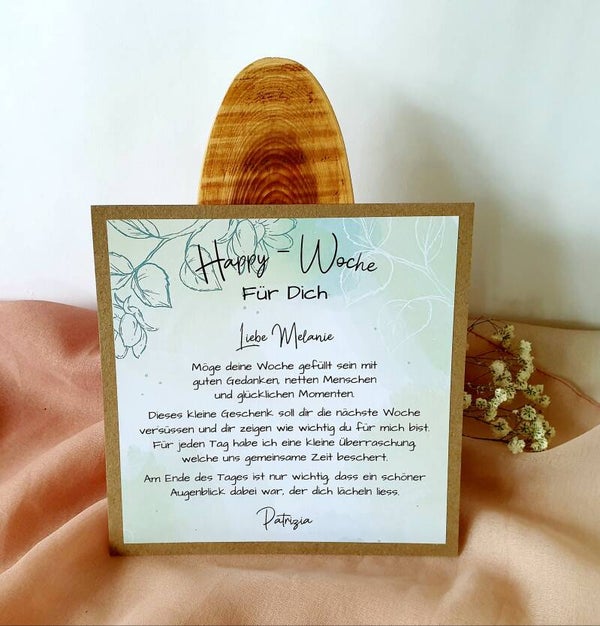 Happy - Woche
Für Dich
Liebe Melanie
Möge deine Woche gefüllt sein mit
guten Gedanken, netten Menschen
und glücklichen Momenten.
Dieses kleine Geschenk soll dir die nächste Woche
versüssen und dir zeigen wie wichtig du für mich bist.
Für jeden Tag habe ich eine kleine Überraschung,
welche uns gemeinsame Zeit beschert.
Am Ende des Tages ist nur wichtig, dass ein schöner
Augenblick dabei war, der dich lächeln liess.
Patrizia